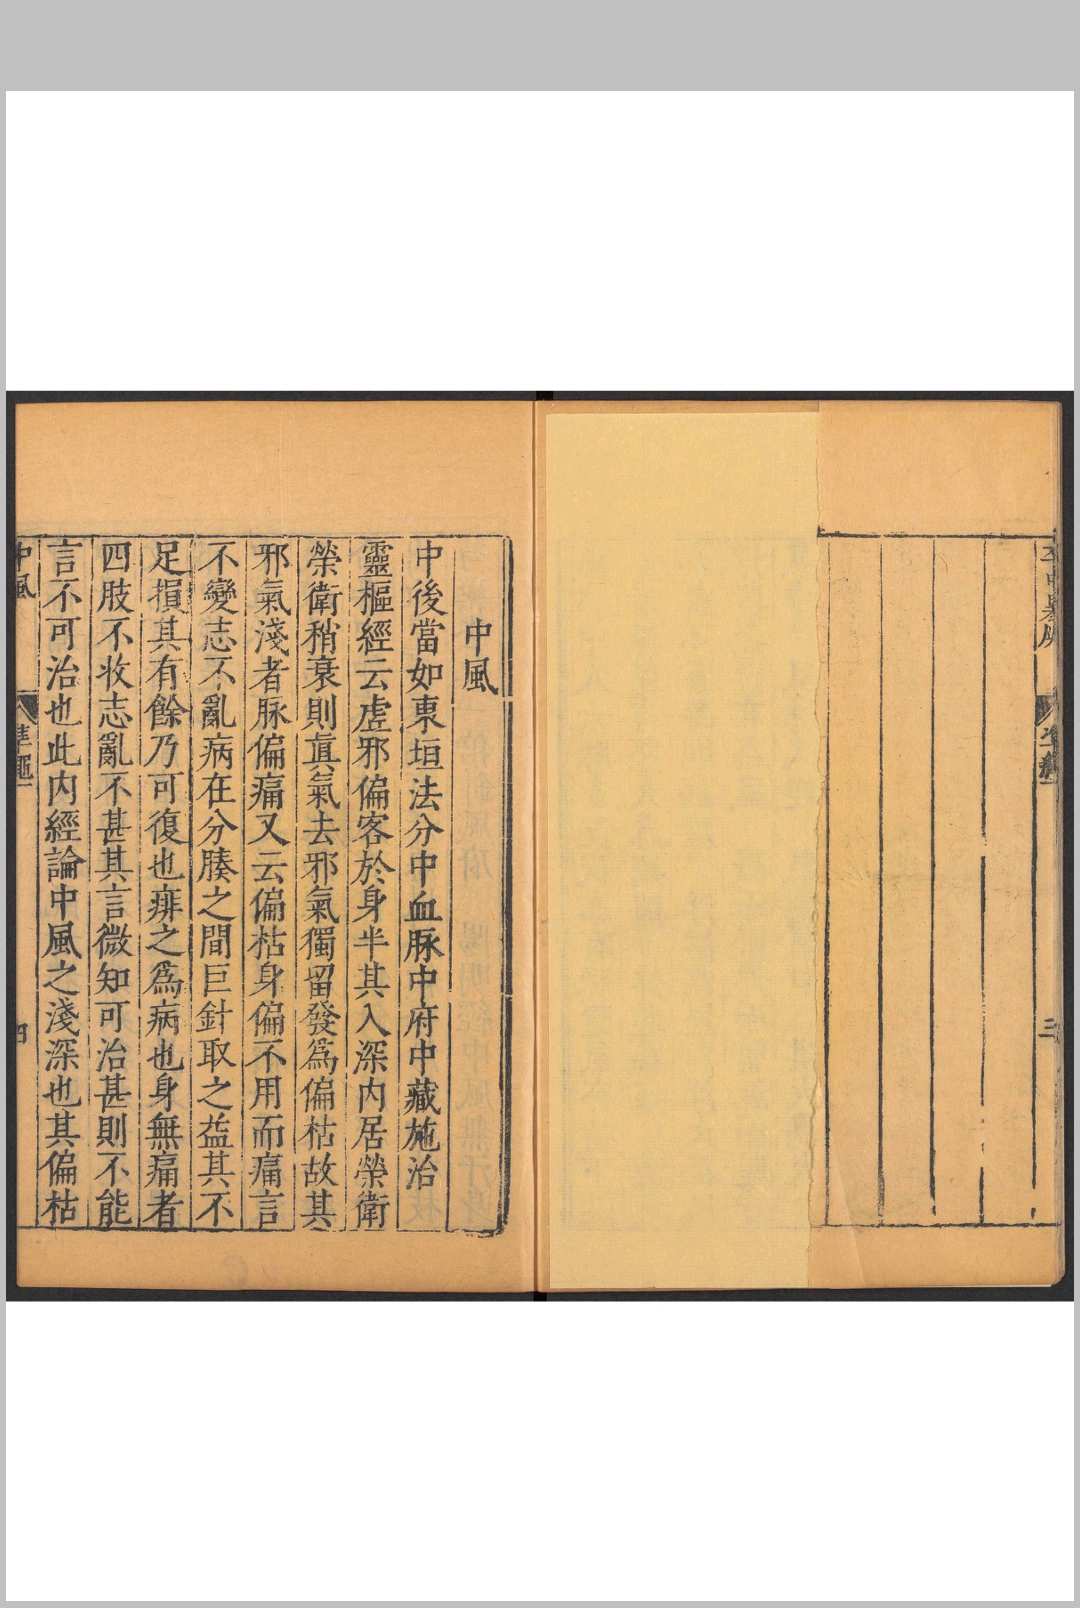 三
中風
中後當如東垣法分中血脉中府中藏施治
靈樞經云虛邪偏客於身半其入深内居榮衛
榮衛稍衰則眞氣去邪氣獨留發爲偏枯故其
邪氣淺者脉偏痛又云偏枯身偏不用而痛言
不變志不亂病在分腠之間巨針取之益其不
足損其有餘乃可復也痱之爲病也身無痛者
四肢不收志亂不甚其言微知可治甚則不能
言不可治也此内經論中風之淺深也其偏枯
中風
準繩一
四